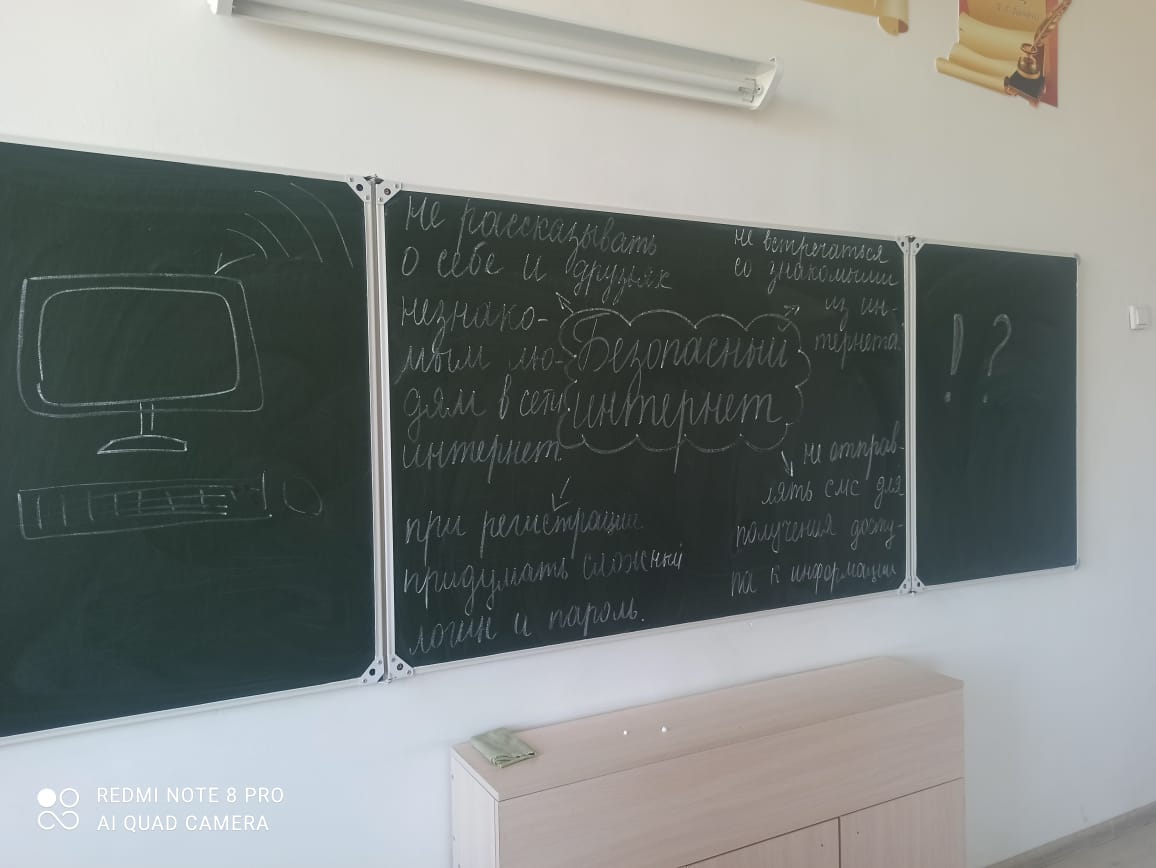 не рассказывать
о себе и друзьях
незнако-
мым лю-
дям в сети
интернет.
Безопасный
интернет
не встречаться
со знакомыми
из ин-
тернета.
при регистрации
придумать сложный
логин и пароль.
не отправ-
лять смс для
получения досту-
па к информации
! ?
REDMI NOTE 8 PRO
AI QUAD CAMERA